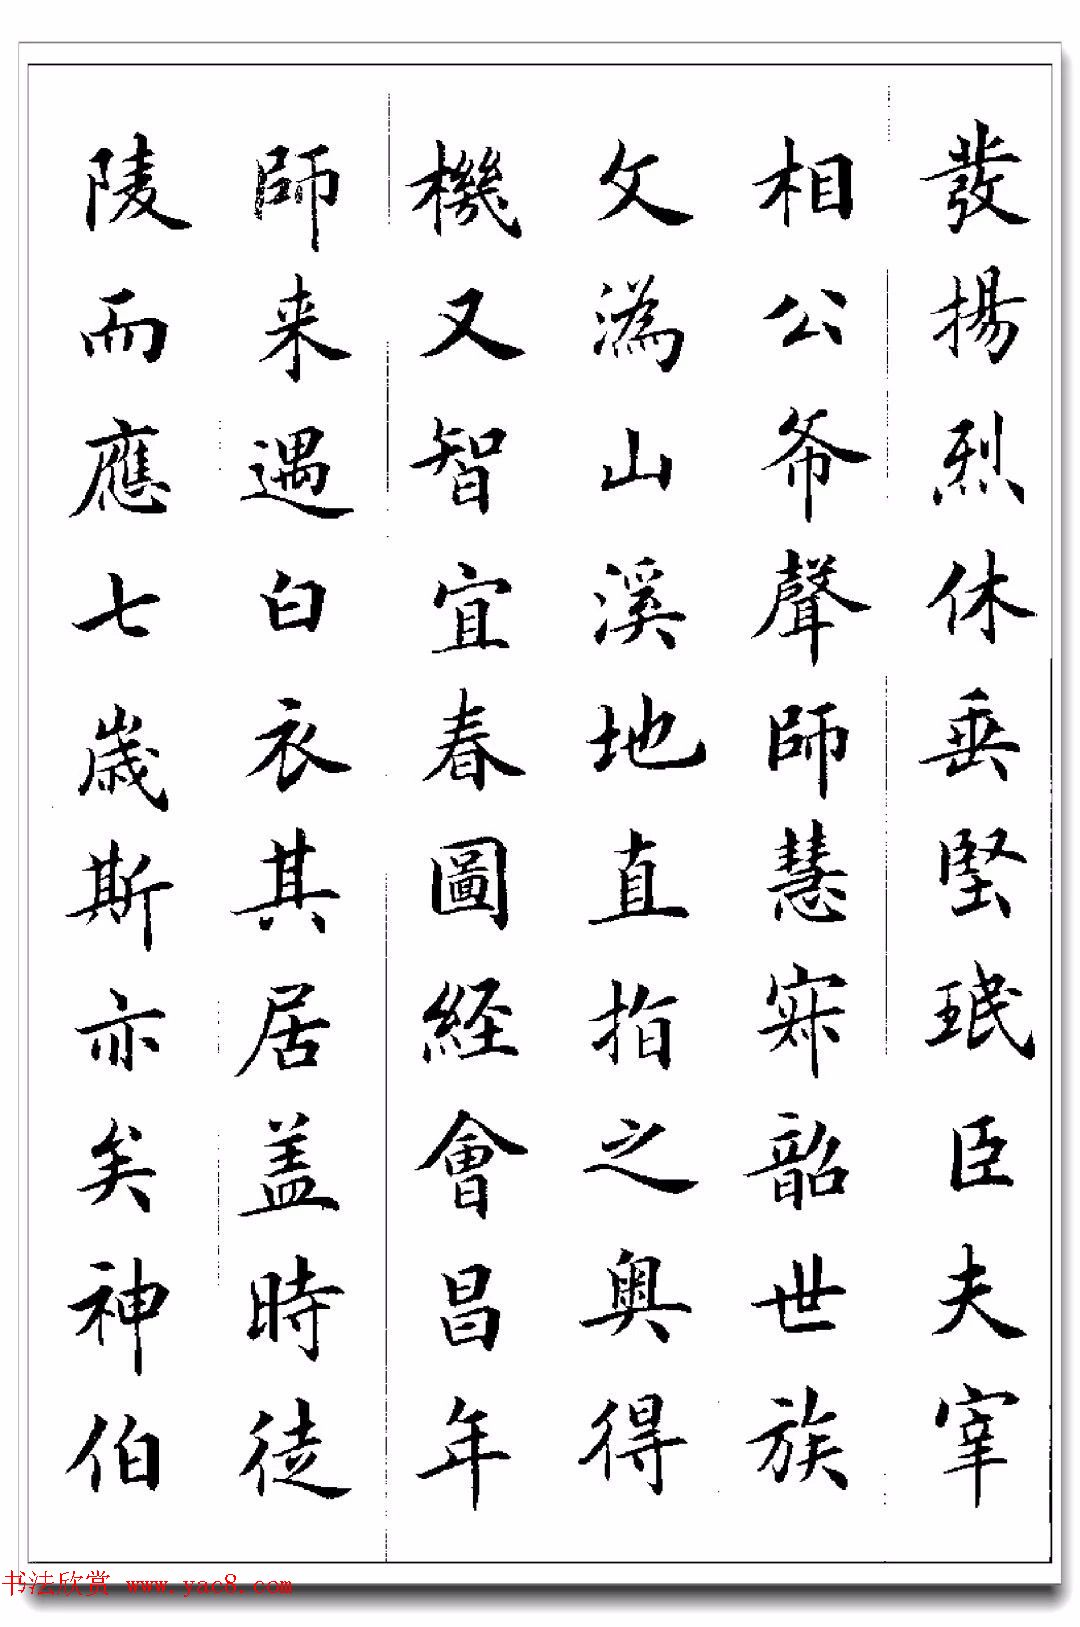 發揚烈休垂堅珉臣夫宰
相公爷聲師慧寂韶世族
文溈山溪地直指之奥得
機又智宜春圖経會昌年
師来遇白衣其居盖時徒
陵而應七歳斯亦矣神伯
书法欣赏 www.yac8.com